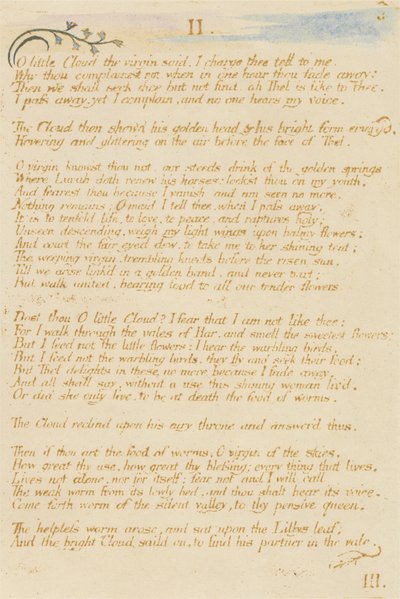 II.
O little Cloud the virgin said, I charge thee tell to me,
Why thou complainest not when in one hour thou fade away:
Then we shall seek thee but not find; ah Thel is like to Thee.
I pass away, yet I complain, and no one hears my voice.
The Cloud then shew'd his golden head & his bright form emerg'd,
Hovering and glittering on the air before the face of Thel.
O virgin know'st thou not our steeds drink of the golden springs
Where Luvah doth renew his horses: look'st thou on my youth,
And fearest thou because I vanish and am seen no more.
Nothing remains; O maid I tell thee, when I pass away,
It is to tenfold life, to love, to peace, and raptures holy:
Unseen descending, weigh my light wings upon balmy flowers;
And court the fair eyed dew, to take me to her shining tent;
The weeping virgin, trembling kneels before the risen sun,
Till we arise link'd in a golden band, and never part;
But walk united, bearing food to all our tender flowers
Dost thou O little Cloud? I fear that I am not like thee;
For I walk through the vales of Har, and smell the sweetest flowers;
But I feed not the little flowers: I hear the warbling birds,
But I feed not the warbling birds, they fly and seek their food;
But Thel delights in these no more because I fade away,
And all shall say, without a use this shining woman liv'd,
Or did she only live, to be at death the food of worms.
The Cloud reclind upon his airy throne and answer'd thus.
Then if thou art the food of worms, O virgin of the skies,
How great thy use, how great thy blessing; every thing that lives,
Lives not alone, nor for itself: fear not and I will call
The weak worm from its lowly bed, and thou shalt hear its voice.
Come forth worm of the silent valley, to thy pensive queen.
The helpless worm arose, and sat upon the Lillys leaf,
And the bright Cloud saild on, to find his partner in the vale.
III.